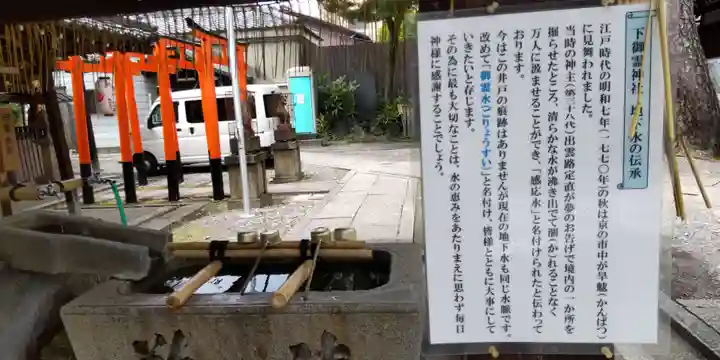 下御霊神社 地下水の伝承
江戸時代の明和七年(一七七〇年)の秋は京の市中が旱魃(かんばつ)
に見舞われました。
当時の神主(第三十八代)出雲路定直が夢のお告げで境内の一か所を
掘らせたところ、清らかな水が沸き出でて涸(か)れることなく
万人に汲ませることができ、「感応水」と名付けられたと伝わって
おります。
今はこの井戸の痕跡はありませんが現在の地下水も同じ水脈です。
改めて「御霊水ごりょうすい」と名付け、皆様とともに大事にして
いきたいと存じます。
その為に最も大切なことは、水の恵みをあたりまえに思わず毎日
神様に感謝することでしょう。